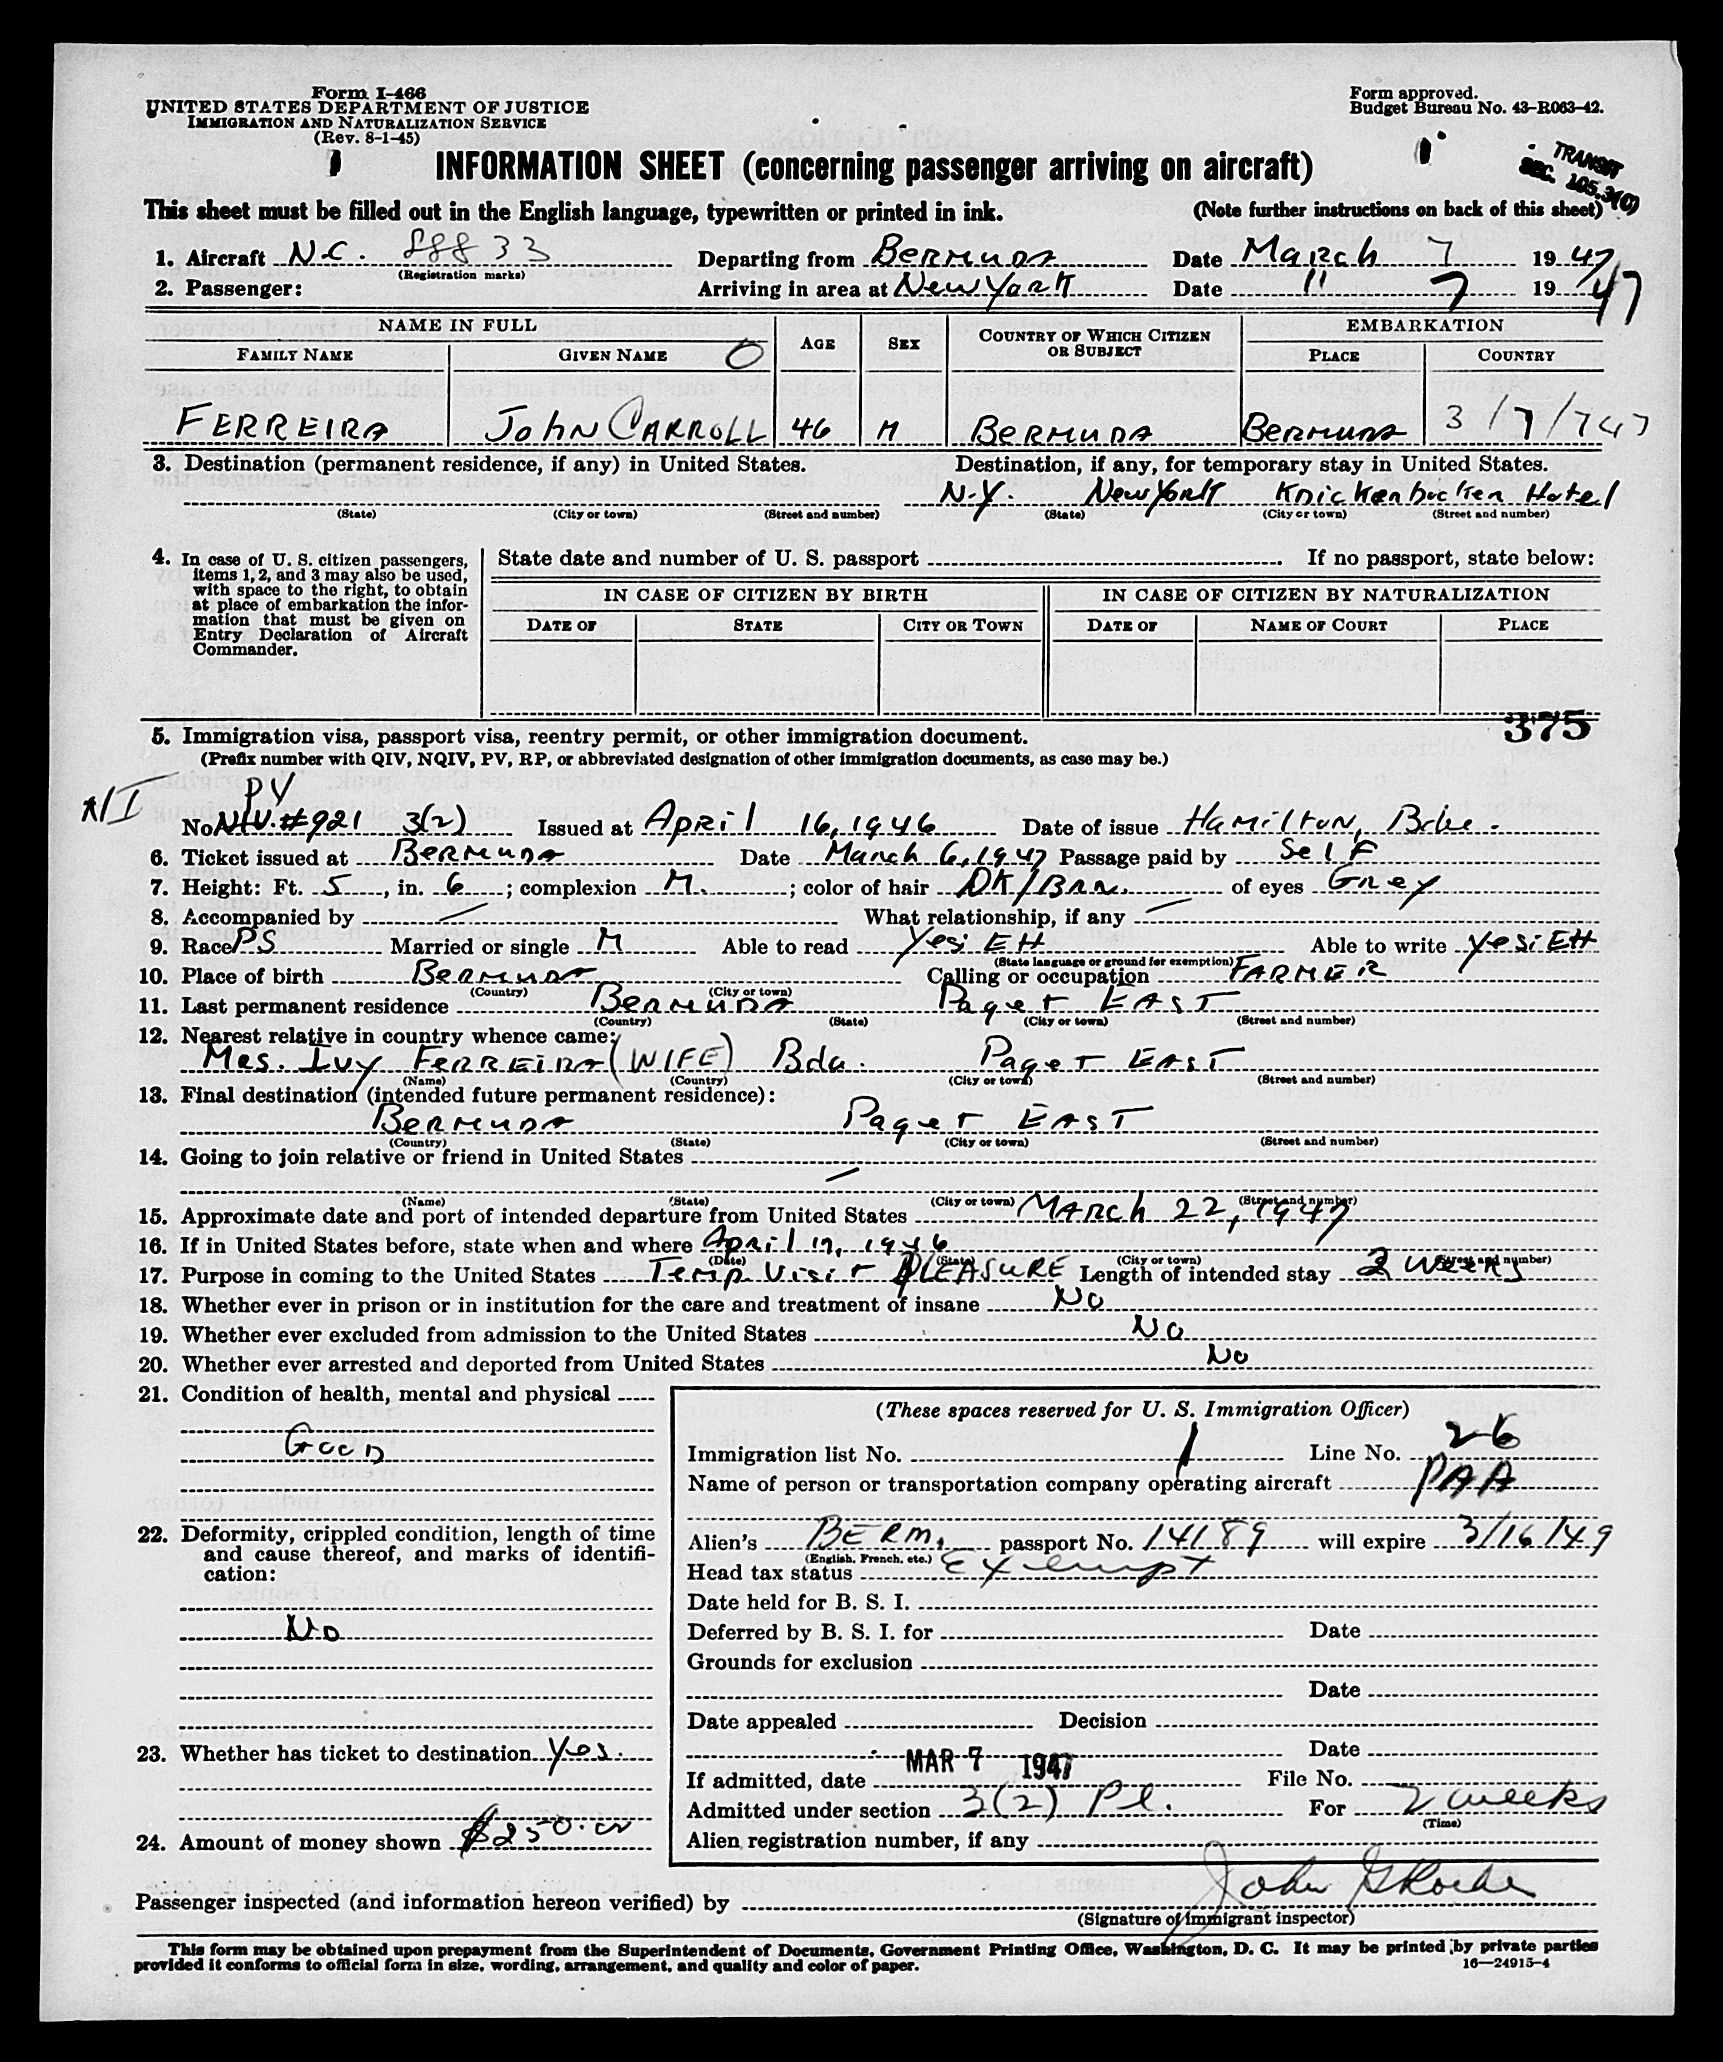 Form I-466
UNITED STATES DEPARTMENT OF JUSTICE
IMMIGRATION AND NATURALIZATION SERVICE
(Rev. 8-1-45)
Form approved.
Budget Bureau No. 43-R063-42.
INFORMATION SHEET (concerning passenger arriving on aircraft)
TRANSIT
SEC. 105.3(C)
This sheet must be filled out in the English language, typewritten or printed in ink. (Note further instructions on back of this sheet)
1. Aircraft N.C. 88833 Departing from BERMUDA Date MARch 7 1947
(Registration marks)
2. Passenger: Arriving in area at New York Date 11 7 1947
NAME IN FULL AGE SEX COUNTRY OF WHICH CITIZEN OR SUBJECT EMBARKATION
FAMILY NAME GIVEN NAME O PLACE COUNTRY
FERREIRA JohN CARROLL 46 M BERMUDA BERMUDA 3/7/747
3. Destination (permanent residence, if any) in United States. Destination, if any, for temporary stay in United States.
N.Y. New York Knickerbocker Hotel
(State) (City or town) (Street and number) (State) (City or town) (Street and number)
4. In case of U. S. citizen passengers, items 1, 2, and 3 may also be used, with space to the right, to obtain at place of embarkation the information that must be given on Entry Declaration of Aircraft Commander.
State date and number of U. S. passport If no passport, state below:
IN CASE OF CITIZEN BY BIRTH IN CASE OF CITIZEN BY NATURALIZATION
DATE OF STATE CITY OR TOWN DATE OF NAME OF COURT PLACE
375
5. Immigration visa, passport visa, reentry permit, or other immigration document.
(Prefix number with QIV, NQIV, PV, RP, or abbreviated designation of other immigration documents, as case may be.)
PV
No. NIV. #921 3(2) Issued at April 16, 1946 Date of issue Hamilton, Bda.
6. Ticket issued at BERMUDA Date March 6, 1947 Passage paid by Self
7. Height: Ft. 5, in. 6; complexion M.; color of hair DK/BRN. of eyes Grey
8. Accompanied by — What relationship, if any —
9. Race PS Married or single M Able to read Yes; EH Able to write Yes; EH
(State language or ground for exemption)
10. Place of birth BERMUDA Calling or occupation FARMER
(Country) (City or town)
11. Last permanent residence BERMUDA Paget EAST
(Country) (State) (City or town) (Street and number)
12. Nearest relative in country whence came:
MRS. Ivy FERREIRA (WIFE) Bda. Paget EAST
(Name) (Country) (City or town) (Street and number)
13. Final destination (intended future permanent residence):
BERMUDA Paget EAST
(Country) (State) (City or town) (Street and number)
14. Going to join relative or friend in United States
—
(Name) (State) (City or town) (Street and number)
15. Approximate date and port of intended departure from United States MARch 22, 1947
16. If in United States before, state when and where April 17, 1946
(Date) (State) (City or town) (Street and number)
17. Purpose in coming to the United States Temp Visit PLEASURE Length of intended stay 2 weeks
18. Whether ever in prison or in institution for the care and treatment of insane No
19. Whether ever excluded from admission to the United States No
20. Whether ever arrested and deported from United States No
21. Condition of health, mental and physical
Good
22. Deformity, crippled condition, length of time and cause thereof, and marks of identification:
No
23. Whether has ticket to destination Yes.
24. Amount of money shown $250.00
(These spaces reserved for U. S. Immigration Officer)
Immigration list No. 1 Line No. 26
Name of person or transportation company operating aircraft PAA
Alien's BERM. passport No. 14189 will expire 3/16/49
(English, French, etc.)
Head tax status Exempt
Date held for B. S. I.
Deferred by B. S. I. for Date
Grounds for exclusion
Date
Date appealed Decision
Date
If admitted, date MAR 7 1947 File No.
Admitted under section 3(2) Pl. For 2 weeks
(Time)
Alien registration number, if any
Passenger inspected (and information hereon verified) by John G Roche
(Signature of immigrant inspector)
This form may be obtained upon prepayment from the Superintendent of Documents, Government Printing Office, Washington, D. C. It may be printed by private parties
provided it conforms to official form in size, wording, arrangement, and quality and color of paper.
16—24915-4